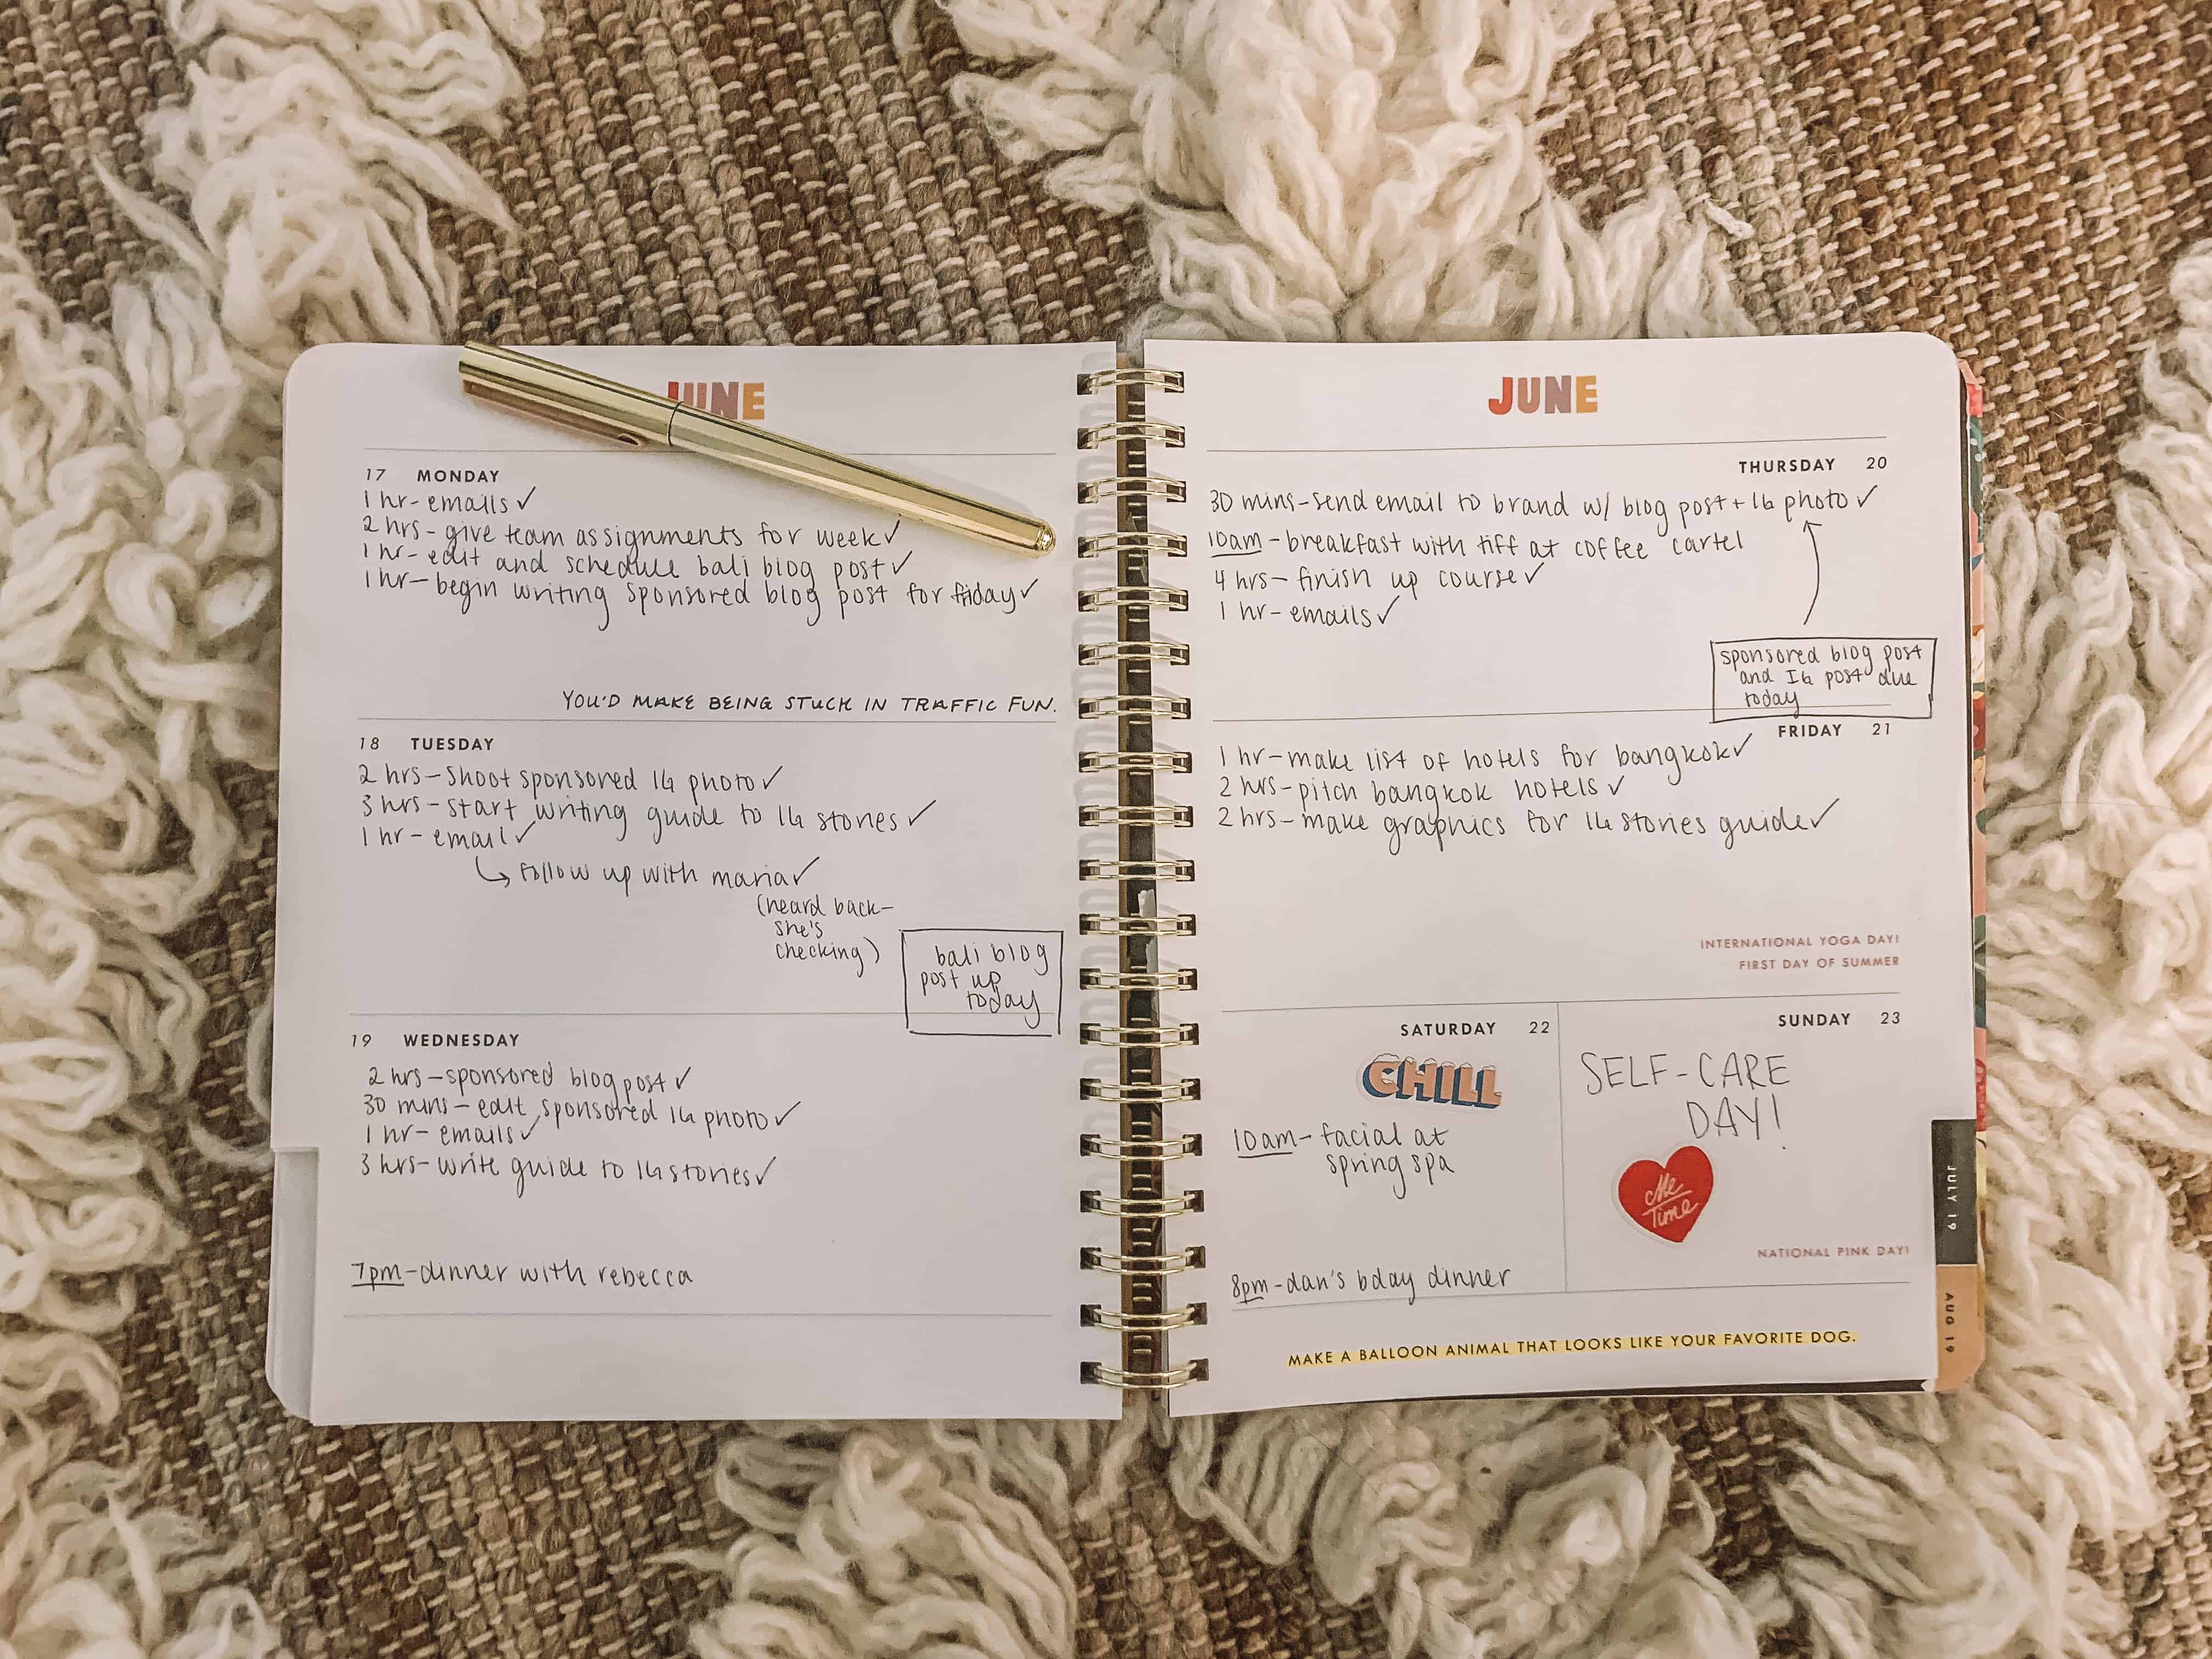 JUNE
17 MONDAY
1 hr-emails✓
2 hrs-give team assignments for week✓
1 hr-edit and schedule bali blog post✓
1 hr-begin writing sponsored blog post for friday✓
YOU'D MAKE BEING STUCK IN TRAFFIC FUN.
18 TUESDAY
2 hrs-shoot sponsored IG photo✓
3 hrs-start writing guide to IG stories✓
1 hr-email✓
↳ follow up with maria✓
(heard back-
she's
checking)
bali blog
post up
today
19 WEDNESDAY
2 hrs-sponsored blog post✓
30 mins-edit sponsored IG photo✓
1 hr-emails✓
3 hrs-write guide to IG stories✓
7pm-dinner with rebecca
JUNE
THURSDAY 20
30 mins-send email to brand w/ blog post+IG photo✓
10am-breakfast with tiff at coffee cartel
4 hrs-finish up course✓
1 hr-emails✓
sponsored blog post
and IG post due
today
FRIDAY 21
1 hr-make list of hotels for bangkok✓
2 hrs-pitch bangkok hotels✓
2 hrs-make graphics for IG stories guide✓
INTERNATIONAL YOGA DAY!
FIRST DAY OF SUMMER
SATURDAY 22
CHILL
10am-facial at
spring spa
8pm-dan's bday dinner
SUNDAY 23
SELF-CARE
DAY!
Me
Time
NATIONAL PINK DAY!
MAKE A BALLOON ANIMAL THAT LOOKS LIKE YOUR FAVORITE DOG.
JULY 19
AUG 19